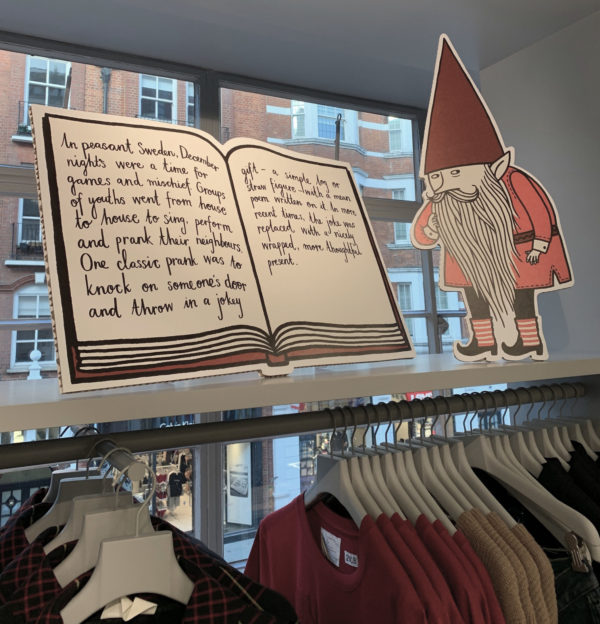 In peasant Sweden, December
nights were a time for
games and mischief. Groups
of youths went from house
to house to sing, perform
and prank their neighbours.
One classic prank was to
knock on someone's door
and throw in a jokey
gift – a simple log or
straw figure, with a mean
poem written on it. In more
recent times, the joke was
replaced with a nicely
wrapped, more thoughtful
present.